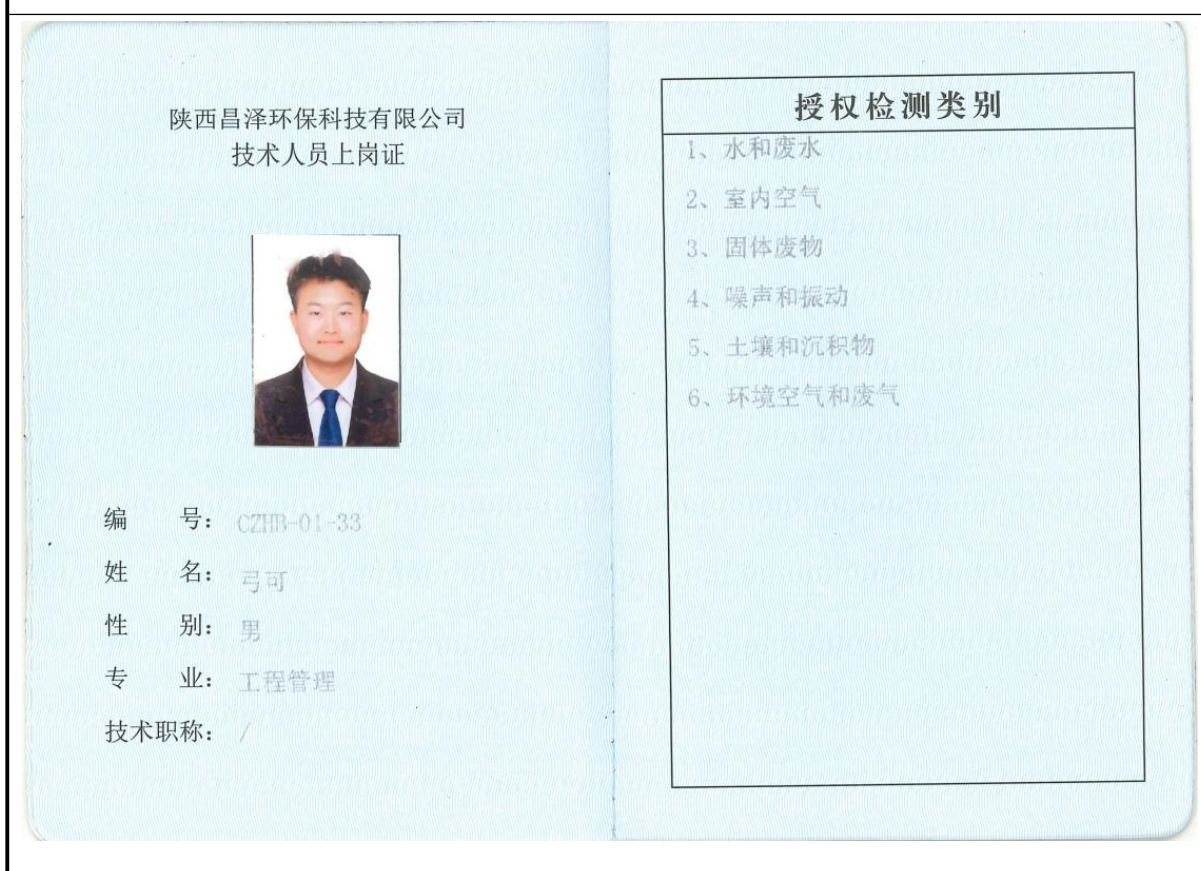 陕西昌泽环保科技有限公司
技术人员上岗证
编 号： CZHB-01-33
姓 名： 弓可
性 别： 男
专 业： 工程管理
技术职称： /
授权检测类别
1、水和废水
2、室内空气
3、固体废物
4、噪声和振动
5、土壤和沉积物
6、环境空气和废气